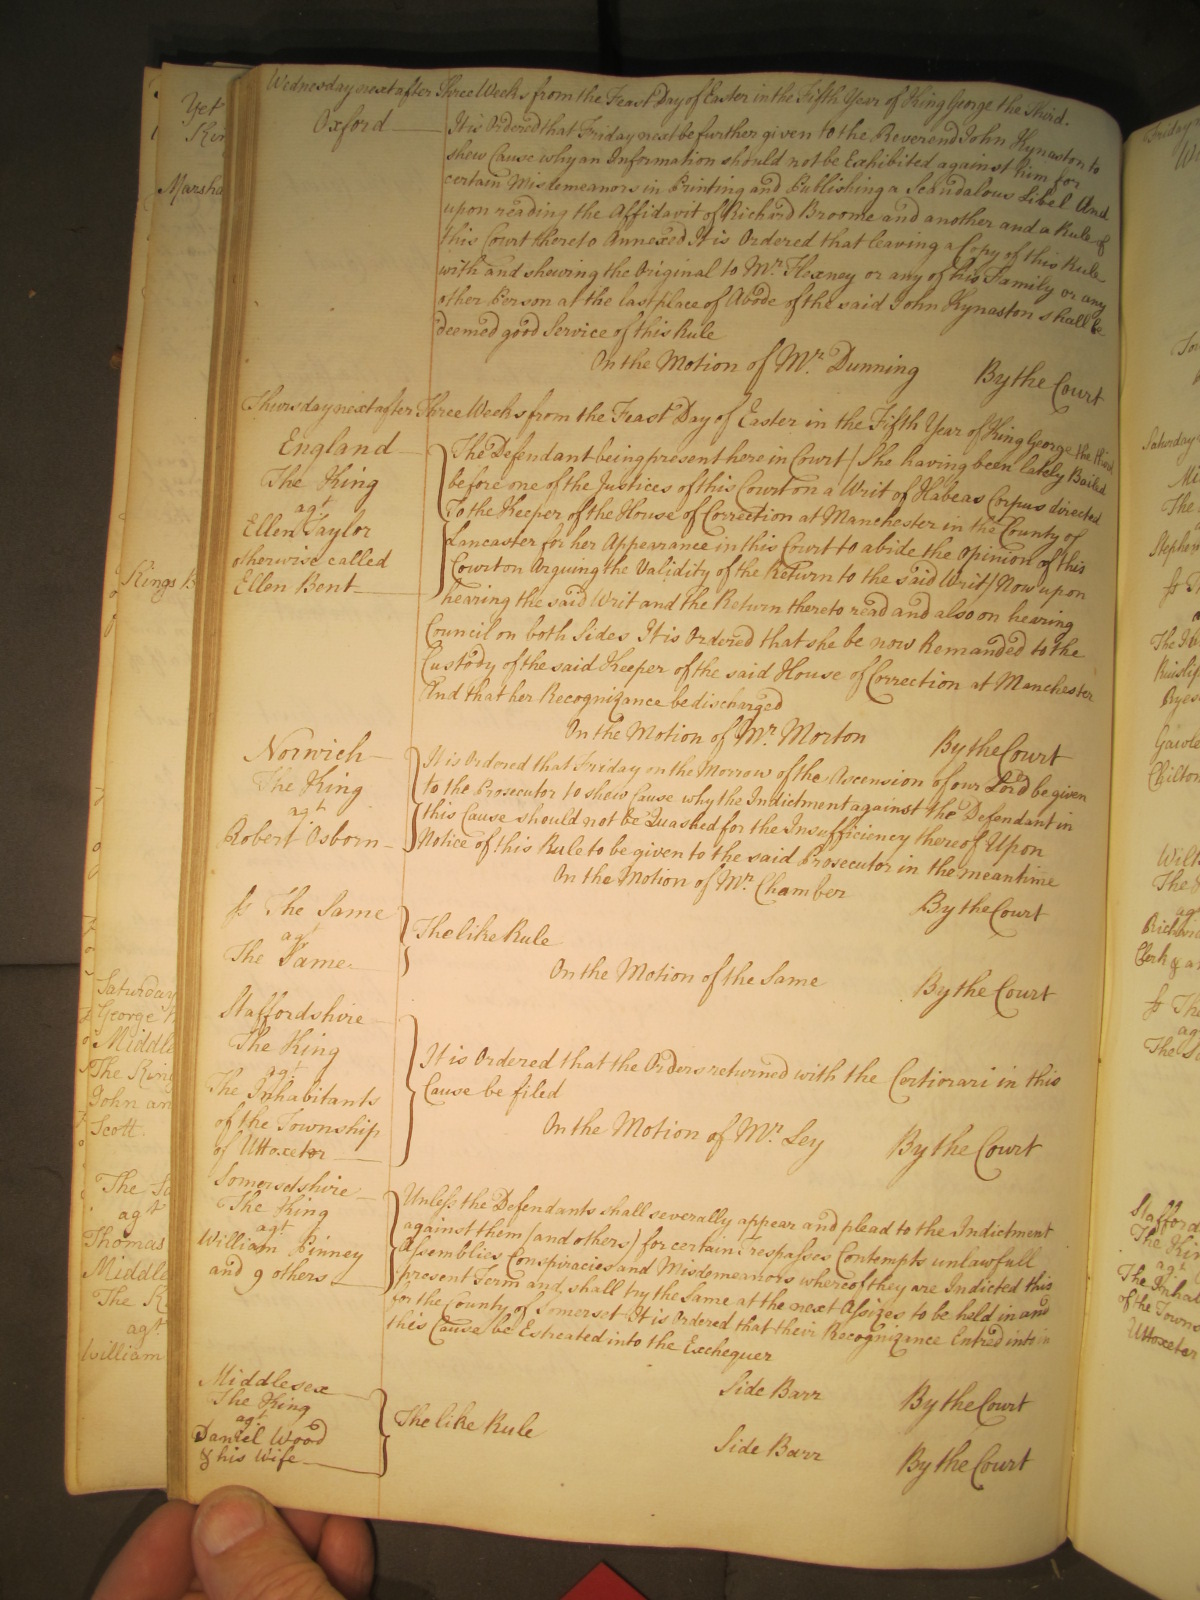 Wednesday next after Three Weeks from the Feast Day of Easter in the Fifth Year of King George the Third.
Oxford
It is Ordered that Friday next be further given to the Reverend John Kynaston to
shew Cause why an Information should not be Exhibited against him for
certain Misdemeanors in Printing and Publishing a Scandalous Libel And
upon reading the Affidavit of Richard Broome and another and a Rule of
this Court thereto Annexed It is Ordered that leaving a Copy of this Rule
with and shewing the Original to Mr. Flexney or any of his Family or any
other Person at the last place of Abode of the said John Kynaston shall be
deemed good Service of this Rule
On the Motion of Mr. Dunning By the Court
Thursday next after Three Weeks from the Feast Day of Easter in the Fifth Year of King George the third
England
The King
agt
Ellen Taylor
otherwise called
Ellen Bent
The Defendant being present here in Court / She having been lately Bailed
before one of the Justices of this Court on a Writ of Habeas Corpus directed
To the Keeper of the House of Correction at Manchester in the County of
Lancaster for her Appearance in this Court to abide the Opinion of this
Court on Arguing the Validity of the Return to the said Writ / Now upon
hearing the said Writ and the Return thereto read and also on hearing
Council on both Sides It is Ordered that she be now Remanded to the
Custody of the said Keeper of the said House of Correction at Manchester
And that her Recognizance be discharged
On the Motion of Mr. Morton By the Court
Norwich
The King
agt
Robert Osborn
It is Ordered that Friday on the Morrow of the Ascension of our Lord be given
to the Prosecutor to shew Cause why the Indictment against the Defendant in
this Cause should not be Quashed for the Insufficiency thereof Upon
Notice of this Rule to be given to the said Prosecutor in the meantime
On the Motion of Mr. Chamber By the Court
fs The Same
agt
The Same
The like Rule
On the Motion of the Same By the Court
Staffordshire
The King
agt
The Inhabitants
of the Township
of Uttoxeter
It is Ordered that the Orders returned with the Certiorari in this
Cause be filed
On the Motion of Mr. Ley By the Court
Somersetshire
The King
agt
William Pinney
and 9 others
Unless the Defendants shall severally appear and plead to the Indictment
against them (and others) for certain Trespasses Contempts unlawfull
Assemblies Conspiracies and Misdemeanors whereof they are Indicted this
present Term and shall try the Same at the next Assizes to be held in and
for the County of Somerset It is Ordered that their Recognizance Entred into in
this Cause be Estreated into the Exchequer
Side Barr By the Court
Middlesex
The King
agt
Daniel Wood
& his Wife
The like Rule
Side Barr By the Court
Saturday
George
Middle
The King
John an
Scott
agt
Thomas
Middle
agt
William